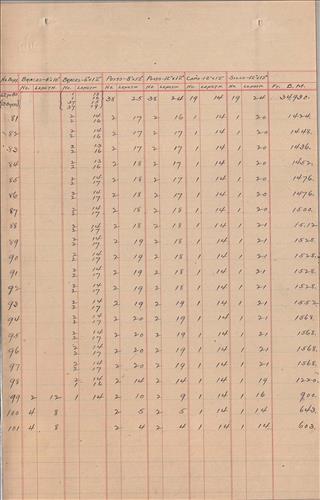 No. Bents BRACES-8"x15" BRACES-6"x15" POSTS-15"x15" POSTS-15"x15" CAPS-15"x15" SILLS-15"x15" FT. B.M.
No. LENGTH No. LENGTH No. LENGTH No. LENGTH No. LENGTH No. LENGTH
38 25 38 24 19 14 19 24 34930.
81 2 14 2 16 2 17 2 16 1 14 1 20 1424.
82 2 14 2 16 2 17 2 17 1 14 1 20 1448.
83 2 13 2 16 2 17 2 17 1 14 1 20 1436.
84 2 13 2 16 2 18 2 17 1 14 1 20 1452.
85 2 14 2 17 2 18 2 17 1 14 1 20 1476.
86 2 14 2 17 2 18 2 17 1 14 1 20 1476.
87 2 14 2 17 2 18 2 18 1 14 1 20 1500.
88 2 14 2 17 2 18 2 18 1 14 1 21 1512
89 2 14 2 17 2 19 2 18 1 14 1 21 1528.
90 2 14 2 17 2 19 2 18 1 14 1 21 1528.
91 2 14 2 17 2 19 2 18 1 14 1 21 1528.
92 2 14 2 17 2 19 2 18 1 14 1 21 1528.
93 2 14 2 17 2 19 2 19 1 14 1 21 1552
94 2 14 2 17 2 20 2 19 1 14 1 21 1568.
95 2 14 2 17 2 20 2 19 1 14 1 21 1568.
96 2 14 2 17 2 20 2 19 1 14 1 21 1568.
97 2 14 2 17 2 20 2 19 1 14 1 21 1568.
98 2 14 1 16 2 14 2 14 1 14 1 19 1220.
99 2 12 1 14 2 10 2 9 1 14 1 16 900.
100 4 8 2 5 2 5 1 14 1 14 643.
101 4 8 2 4 2 4 1 14 1 14 603.